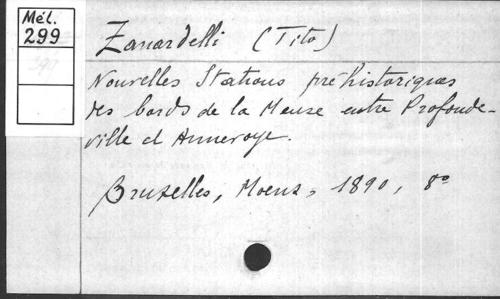 Mél.
299
Zanardelli (Tito)
Nouvelles Stations préhistoriques
des bords de la Meuse entre Profonde-
ville et Anneroye.
Bruxelles, Moens, 1890, 8°